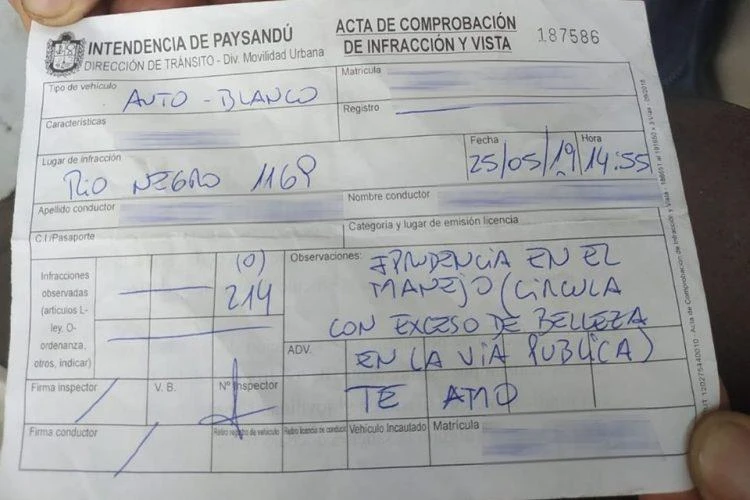 INTENDENCIA DE PAYSANDÚ
DIRECCIÓN DE TRÁNSITO - Div. Movilidad Urbana
ACTA DE COMPROBACIÓN
DE INFRACCIÓN Y VISTA
187586
Tipo de vehículo
AUTO - BLANCO
Matrícula
Características
Registro
Lugar de infracción
RIO NEGRO 1169
Fecha
25/05/19
Hora
14:55
Apellido conductor
Nombre conductor
C.I./Pasaporte
Categoria y lugar de emisión licencia
Infracciones
observadas
(artículos L-
ley, O-
ordenanza,
otros, indicar)
(O)
214
Observaciones:
IPRUDENCIA EN EL
MANEJO (CIRCULA
CON EXCESO DE BELLEZA
EN LA VIA PUBLICA)
TE AMO
ADV.
Firma inspector
V. B.
Nº Inspector
Firma conductor
Retiro registro de vehículo
Retiro licencia de conducir
Vehículo Incautado
Matrícula